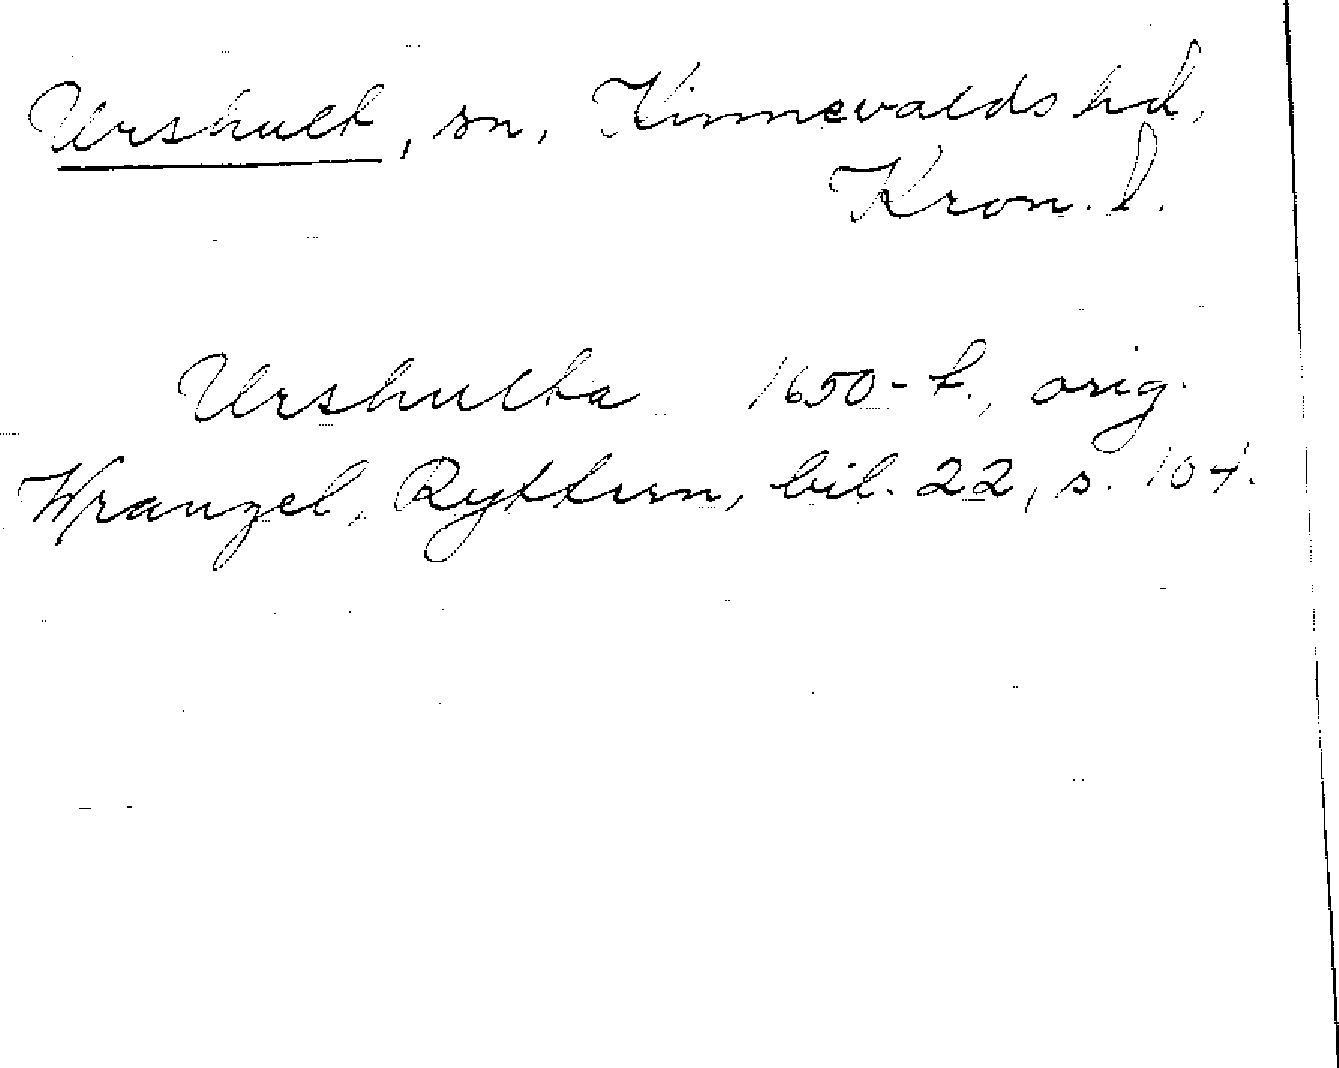 Urshult, sn, Kinnevalds hd,
Kron. l.
Urshulta 1650-t., orig.
Wrangel, Ryttern, bil. 22, s. 104.